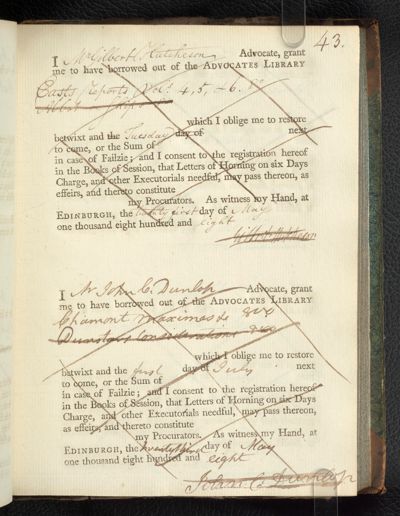 43.
I Mr Gilbert Hutcheson Advocate, grant
me to have borrowed out of the ADVOCATES LIBRARY
Easts Reports Vols. 4, 5, & 6. 8o
which I oblige me to restore
betwixt and the Tuesday day of next
to come, or the Sum of
in case of Failzie; and I consent to the registration hereof
in the Books of Session, that Letters of Horning on six Days
Charge, and other Executorials needful, may pass thereon, as
effeirs, and thereto constitute
my Procurators. As witness my Hand, at
EDINBURGH, the twenty first day of May
one thousand eight hundred and eight
Gilb Hutcheson
I Mr John C. Dunlop Advocate, grant
me to have borrowed out of the ADVOCATES LIBRARY
Maximes & 8vo
Considerations 8vo
which I oblige me to restore
betwixt and the first day of July next
to come, or the Sum of
in case of Failzie; and I consent to the registration hereof
in the Books of Session, that Letters of Horning on six Days
Charge, and other Executorials needful, may pass thereon,
as effeirs, and thereto constitute
my Procurators. As witness my Hand, at
EDINBURGH, the twenty third day of May
one thousand eight hundred and eight
John C. Dunlop